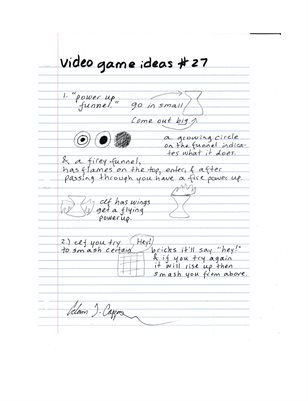 Video game ideas #27
1. "power up
funnel."
go in small
Come out big
a growing circle
on the funnel indica-
tes what it does.
& a firey funnel,
has flames on the top, enter, & after
passing through you have a fire power up.
if has wings
get a flying
power up.
2.) if you try
Hey!
to smash certain bricks it'll say "hey!"
& if you try again
it will rise up then
smash you from above.
Adam J. Cappa